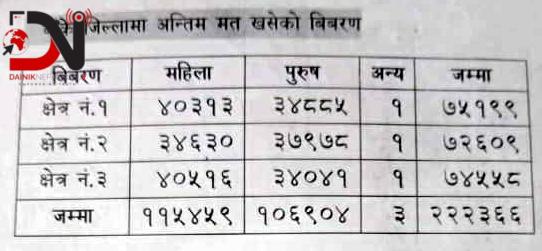 जिल्लामा अन्तिम मत खसेको बिबरण
DN
DAINIK
बिबरण महिला पुरुष अन्य जम्मा
क्षेत्र नं.१ ४०३१३ ३४८८५ १ ७५१९९
क्षेत्र नं.२ ३४६३० ३७९७८ १ ७२६०९
क्षेत्र नं.३ ४०५१६ ३४०४१ १ ७४५५८
जम्मा ११५४५९ १०६९०४ ३ २२२३६६